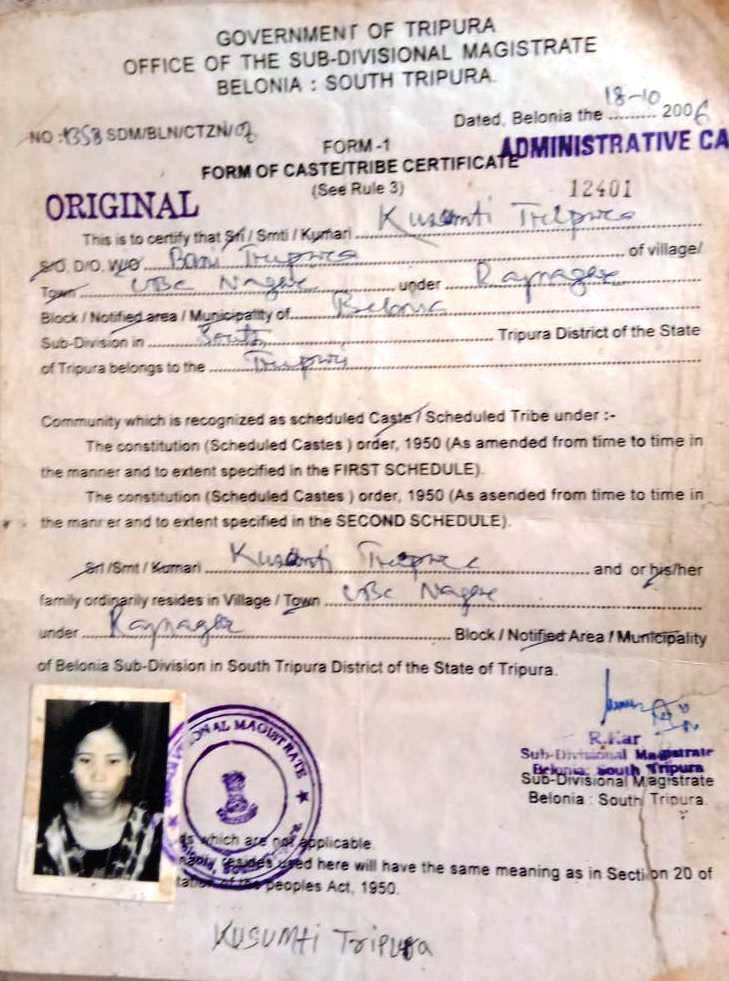 GOVERNMENT OF TRIPURA
OFFICE OF THE SUB-DIVISIONAL MAGISTRATE
BELONIA : SOUTH TRIPURA.
Dated, Belonia the 18-10 2006
NO : 1353 SDM/BLN/CTZN/02
FORM -1
ADMINISTRATIVE CA
FORM OF CASTE/TRIBE CERTIFICATE
(See Rule 3)
12401
ORIGINAL
This is to certify that Sri / Smti / Kumari Kusumti Tripura
S/O. D/O. W/O Bani Tripura of village/
Town UBC Nagar under Rajnagar
Block / Notified area / Municipality of Belonia
Sub-Division in South Tripura District of the State
of Tripura belongs to the Tripuri
Community which is recognized as scheduled Caste / Scheduled Tribe under :-
The constitution (Scheduled Castes ) order, 1950 (As amended from time to time in
the manner and to extent specified in the FIRST SCHEDULE).
The constitution (Scheduled Castes ) order, 1950 (As asended from time to time in
the manr er and to extent specified in the SECOND SCHEDULE).
Sri /Smt / Kumari Kusumti Tripura and or his/her
family ordinarily resides in Village / Town UBC Nagar
under Rajnagar Block / Notified Area / Municipality
of Belonia Sub-Division in South Tripura District of the State of Tripura.
R.Kar
Sub-Divisional Magistrate
Belonia, South Tripura
Sub-Divisional Magistrate
Belonia : South Tripura.
ONAL MAGISTRATE
which are not applicable.
resides used here will have the same meaning as in Section 20 of
of the peoples Act, 1950.
KUSUMti Tripura